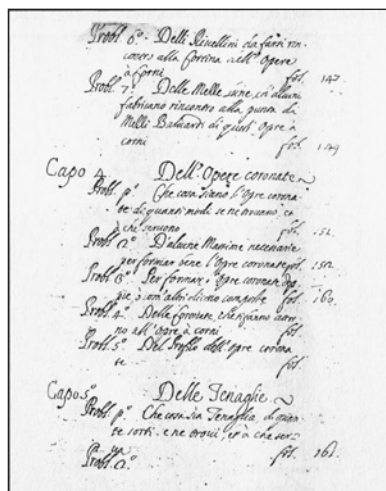 Probl. 6.º Delli Rivellini da farsi rin-
contro alla Cortina nell'Opere
à Corni fol. 147
Probl. 7.º Delle Melle Lune, ch'alcuni
fabricano rincontro alla punta de
Melli Baluardi di questi Opre à
corni fol. 149
Capo 4. Dell'Opere coronate
Probl. pº Che cosa siano l'Opre corona-
te di quanti modi se ne trovano, et
à che servono fol. 151
Probl. 2º D'alcune Massime necessarie
per formar bene l'Opre coronate fol. 152
Probl. 3º Per formar l'Opre coronate dop-
pie, ò com'altri dicono composte fol. 160.
Probl. 4º Delle coronate, che si fanno
no all'Opre à corni fol.
Probl. 5º Del Profilo dell'Opre corona-
te fol.
Capo 5º Delle Tenaglie
Probl. pº Che cosa sia Tenaglia, di quan-
te sorti se ne trovi, et à che ser-
va fol. 161.
Probl. 2º